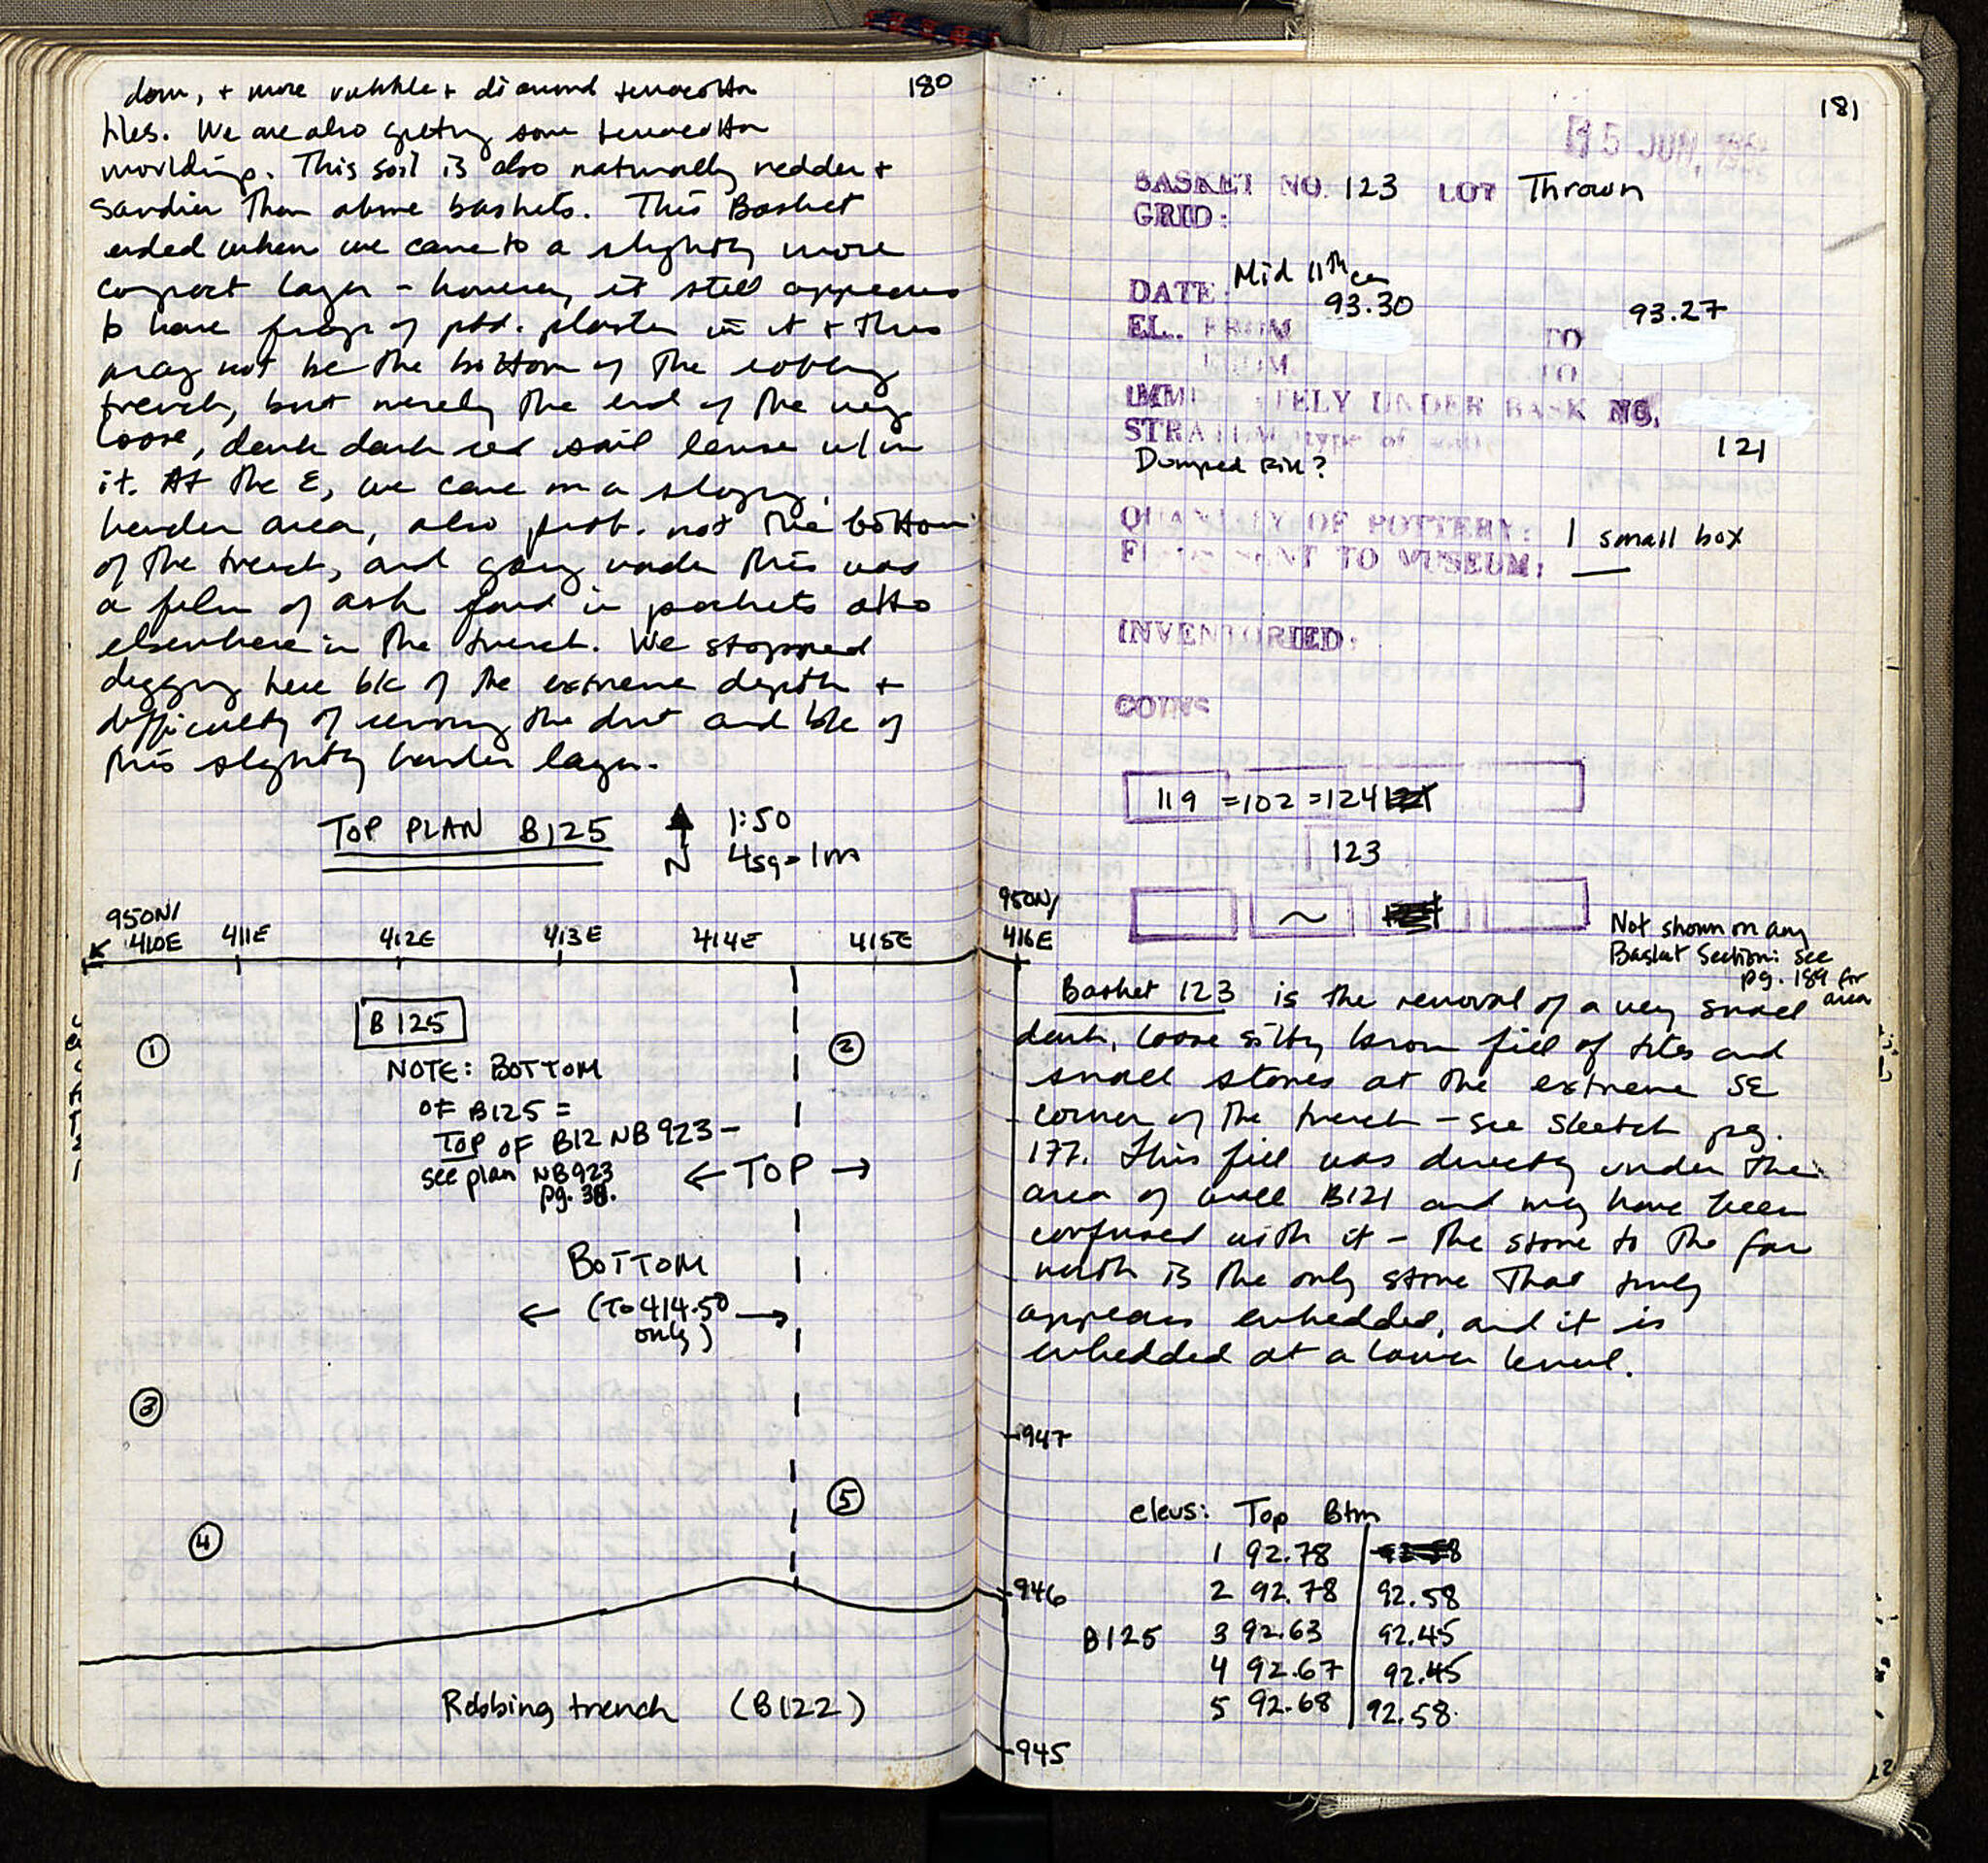 180
down, + more rubble + diamond terracotta
tiles. We are also getting some terracotta
moulding. This soil is also naturally redder +
sandier than above baskets. This Basket
ended when we came to a slightly more
compact layer - however, it still appears
to have frags of ptd. plaster in it + thus
may not be the bottom of the robbing
trench, but merely the end of the very
loose, dark dark red soil lense w/in
it. At the E, we came on a sloping,
harder area, also prob. not the bottom
of the trench, and going under this was
a film of ash found in pockets also
elsewhere in the trench. We stopped
digging here b/c of the extreme depth +
difficulty of removing the dirt and b/c of
this slightly harder layer.
TOP PLAN B125
N
1:50
4sq = 1m
950N/
410E 411E 412E 413E 414E 415E
B125
1
2
NOTE: BOTTOM
OF B125 =
TOP OF B12 NB923 -
see plan NB923
pg. 38.
← TOP →
BOTTOM
← (To 414.50 →
only)
3
5
4
Robbing trench (B122)
181
15 JUN.
BASKET NO. 123 LOT Thrown
GRID:
DATE: Mid 11th cen
93.30 93.27
EL. FROM TO
FROM TO
IMMEDIATELY UNDER BASK NO.
121
STRATUM type of
Dumped Fill?
QUANTITY OF POTTERY: 1 small box
SENT TO MUSEUM: —
INVENTORIED:
COINS
119 = 102 = 124
123
~
950N/
416E
Not shown on any
Basket Section: see
pg. 189 for
area
Basket 123 is the removal of a very small
dark, loose silty brown fill of tiles and
small stones at the extreme SE
corner of the trench - see sketch pg.
177. This fill was directly under the
area of wall B121 and may have been
confused with it - the stone to the far
north is the only stone that truly
appears embedded, and it is
embedded at a lower level.
947
elevs: Top Btm
1 92.78
946
2 92.78 92.58
B125 3 92.63 92.45
4 92.67 92.45
5 92.68 92.58.
945